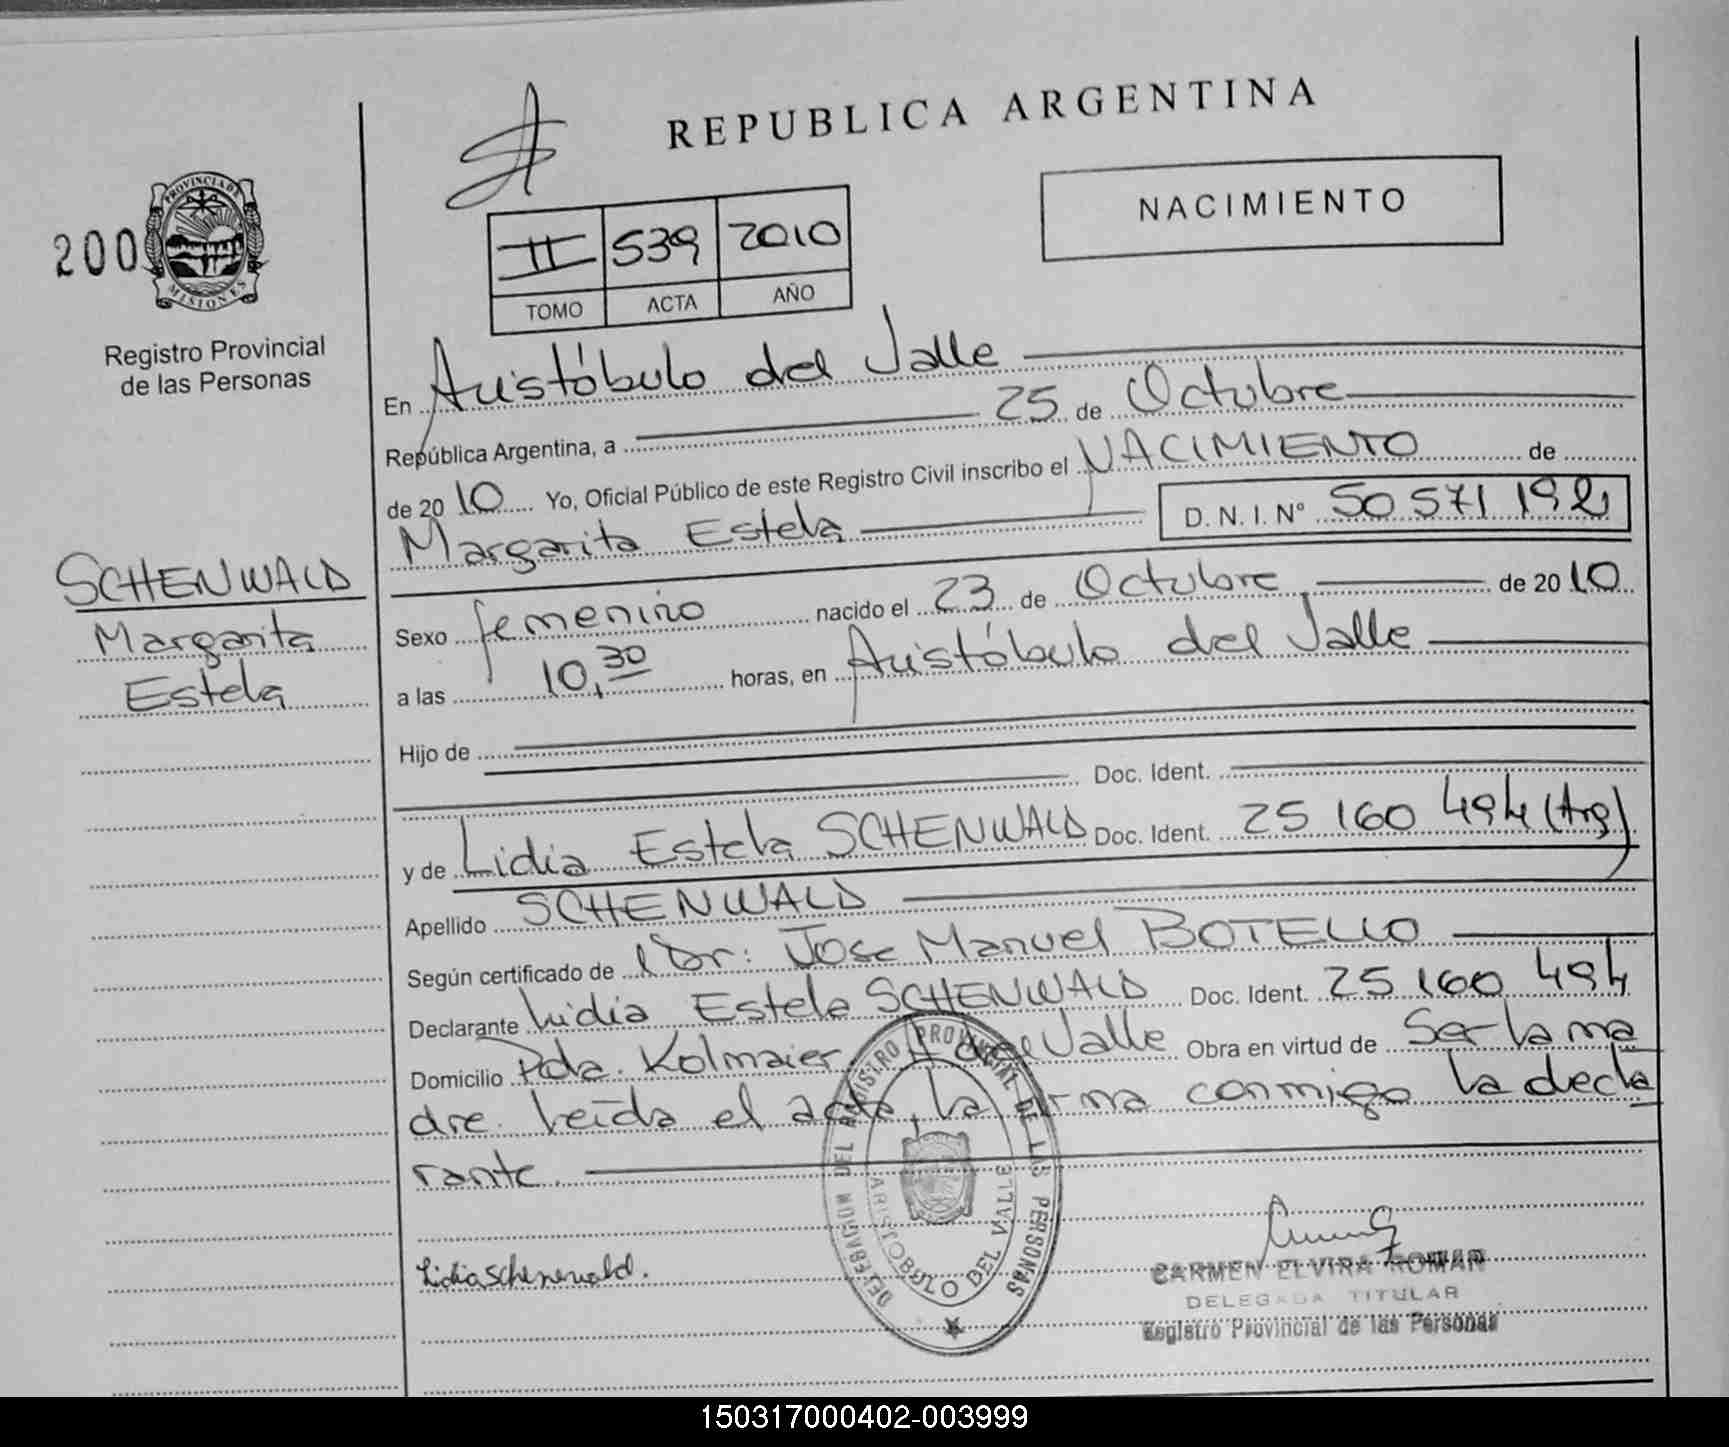 REPUBLICA ARGENTINA
NACIMIENTO
200
PROVINCIA DE
MISIONES
Registro Provincial
de las Personas
II 539 2010
TOMO ACTA AÑO
En Aristóbulo del Valle
República Argentina, a 25 de Octubre
de 2010 Yo, Oficial Público de este Registro Civil inscribo el NACIMIENTO de
Margarita Estela D. N. I. N° 50 571 192
SCHENWALD
Margarita
Estela
Sexo femenino nacido el 23 de Octubre de 2010
a las 10,30 horas, en Aristóbulo del Valle
Hijo de
Doc. Ident.
y de Lidia Estela SCHENWALD Doc. Ident. 25 160 494 (Arg)
Apellido SCHENWALD
Según certificado de Dr: Jose Manuel BOTELLO
Declarante Lidia Estela SCHENWALD Doc. Ident. 25 160 494
Domicilio Pda. Kolmaier. A del Valle Obra en virtud de Ser la ma
dre. Leída el acta, la firma conmigo la decla
rante.
DELEGACION DEL REGISTRO PROVINCIAL DE LAS PERSONAS
ARISTOBULO DEL VALLE
Lidia Schenewald.
CARMEN ELVIRA ROMAN
DELEGADA TITULAR
Registro Provincial de las Personas
150317000402-003999